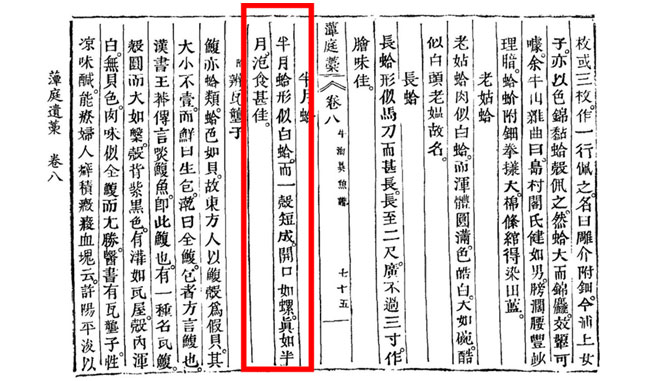 枚或三枚作一行佩之。名曰雕介附鈿。今浦上女
子。亦以色錦黏蛤殼佩之。然蛤大而錦麤。效顰可
嚎。余牛山雜曲曰。島村閣氏健如男。膀濶腰豐
理暗。蛤蚧附鈿拳㨾大。棉絛綰得染出藍。
老姑蛤
老姑蛤肉似白蛤。而渾體圓滿。色皓白。大如碗。酷
似白頭老媼故名。
長蛤
長蛤形似馬刀而甚長。長至二尺。廣不過三寸。作
膾味佳。
藫庭藁 卷八 牛海異魚譜 七十五
半月蛤
半月蛤形似白蛤。而一殼短成。開口如螺。眞如半
月。泡食甚佳。
附 辨瓦壟子
鰒亦蛤類。蛤色如貝。故東方人以鰒殼爲假貝。其
大小不壹。而鮮曰生包。曰全鰒。包者方言鰒也。
漢書王莽傳言啖鰒魚。卽此鰒也。有一種名瓦鰒。
殼圓而大如槃。殼背紫黑色。有溝如瓦屋。殼內渾
白。無貝色。肉味似全鰒而尤勝。醫書有瓦壟子。性
凉味醎。能療婦人癖積癥瘕血塊云。許陽平浚以
藫庭遺藁 卷八